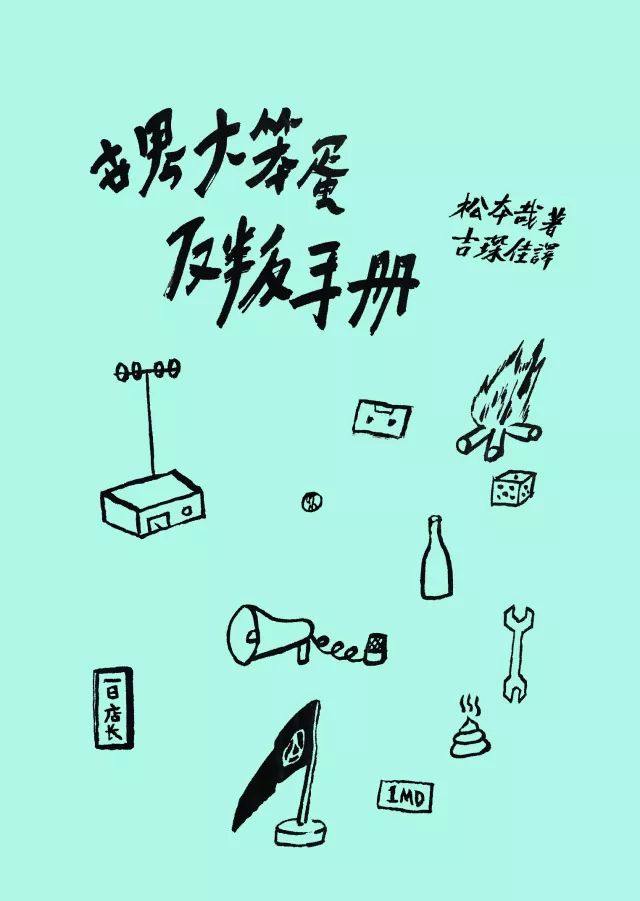 世界大笨蛋
反叛手册
松本哉著
吉琛佳譯
一日店长
1MD